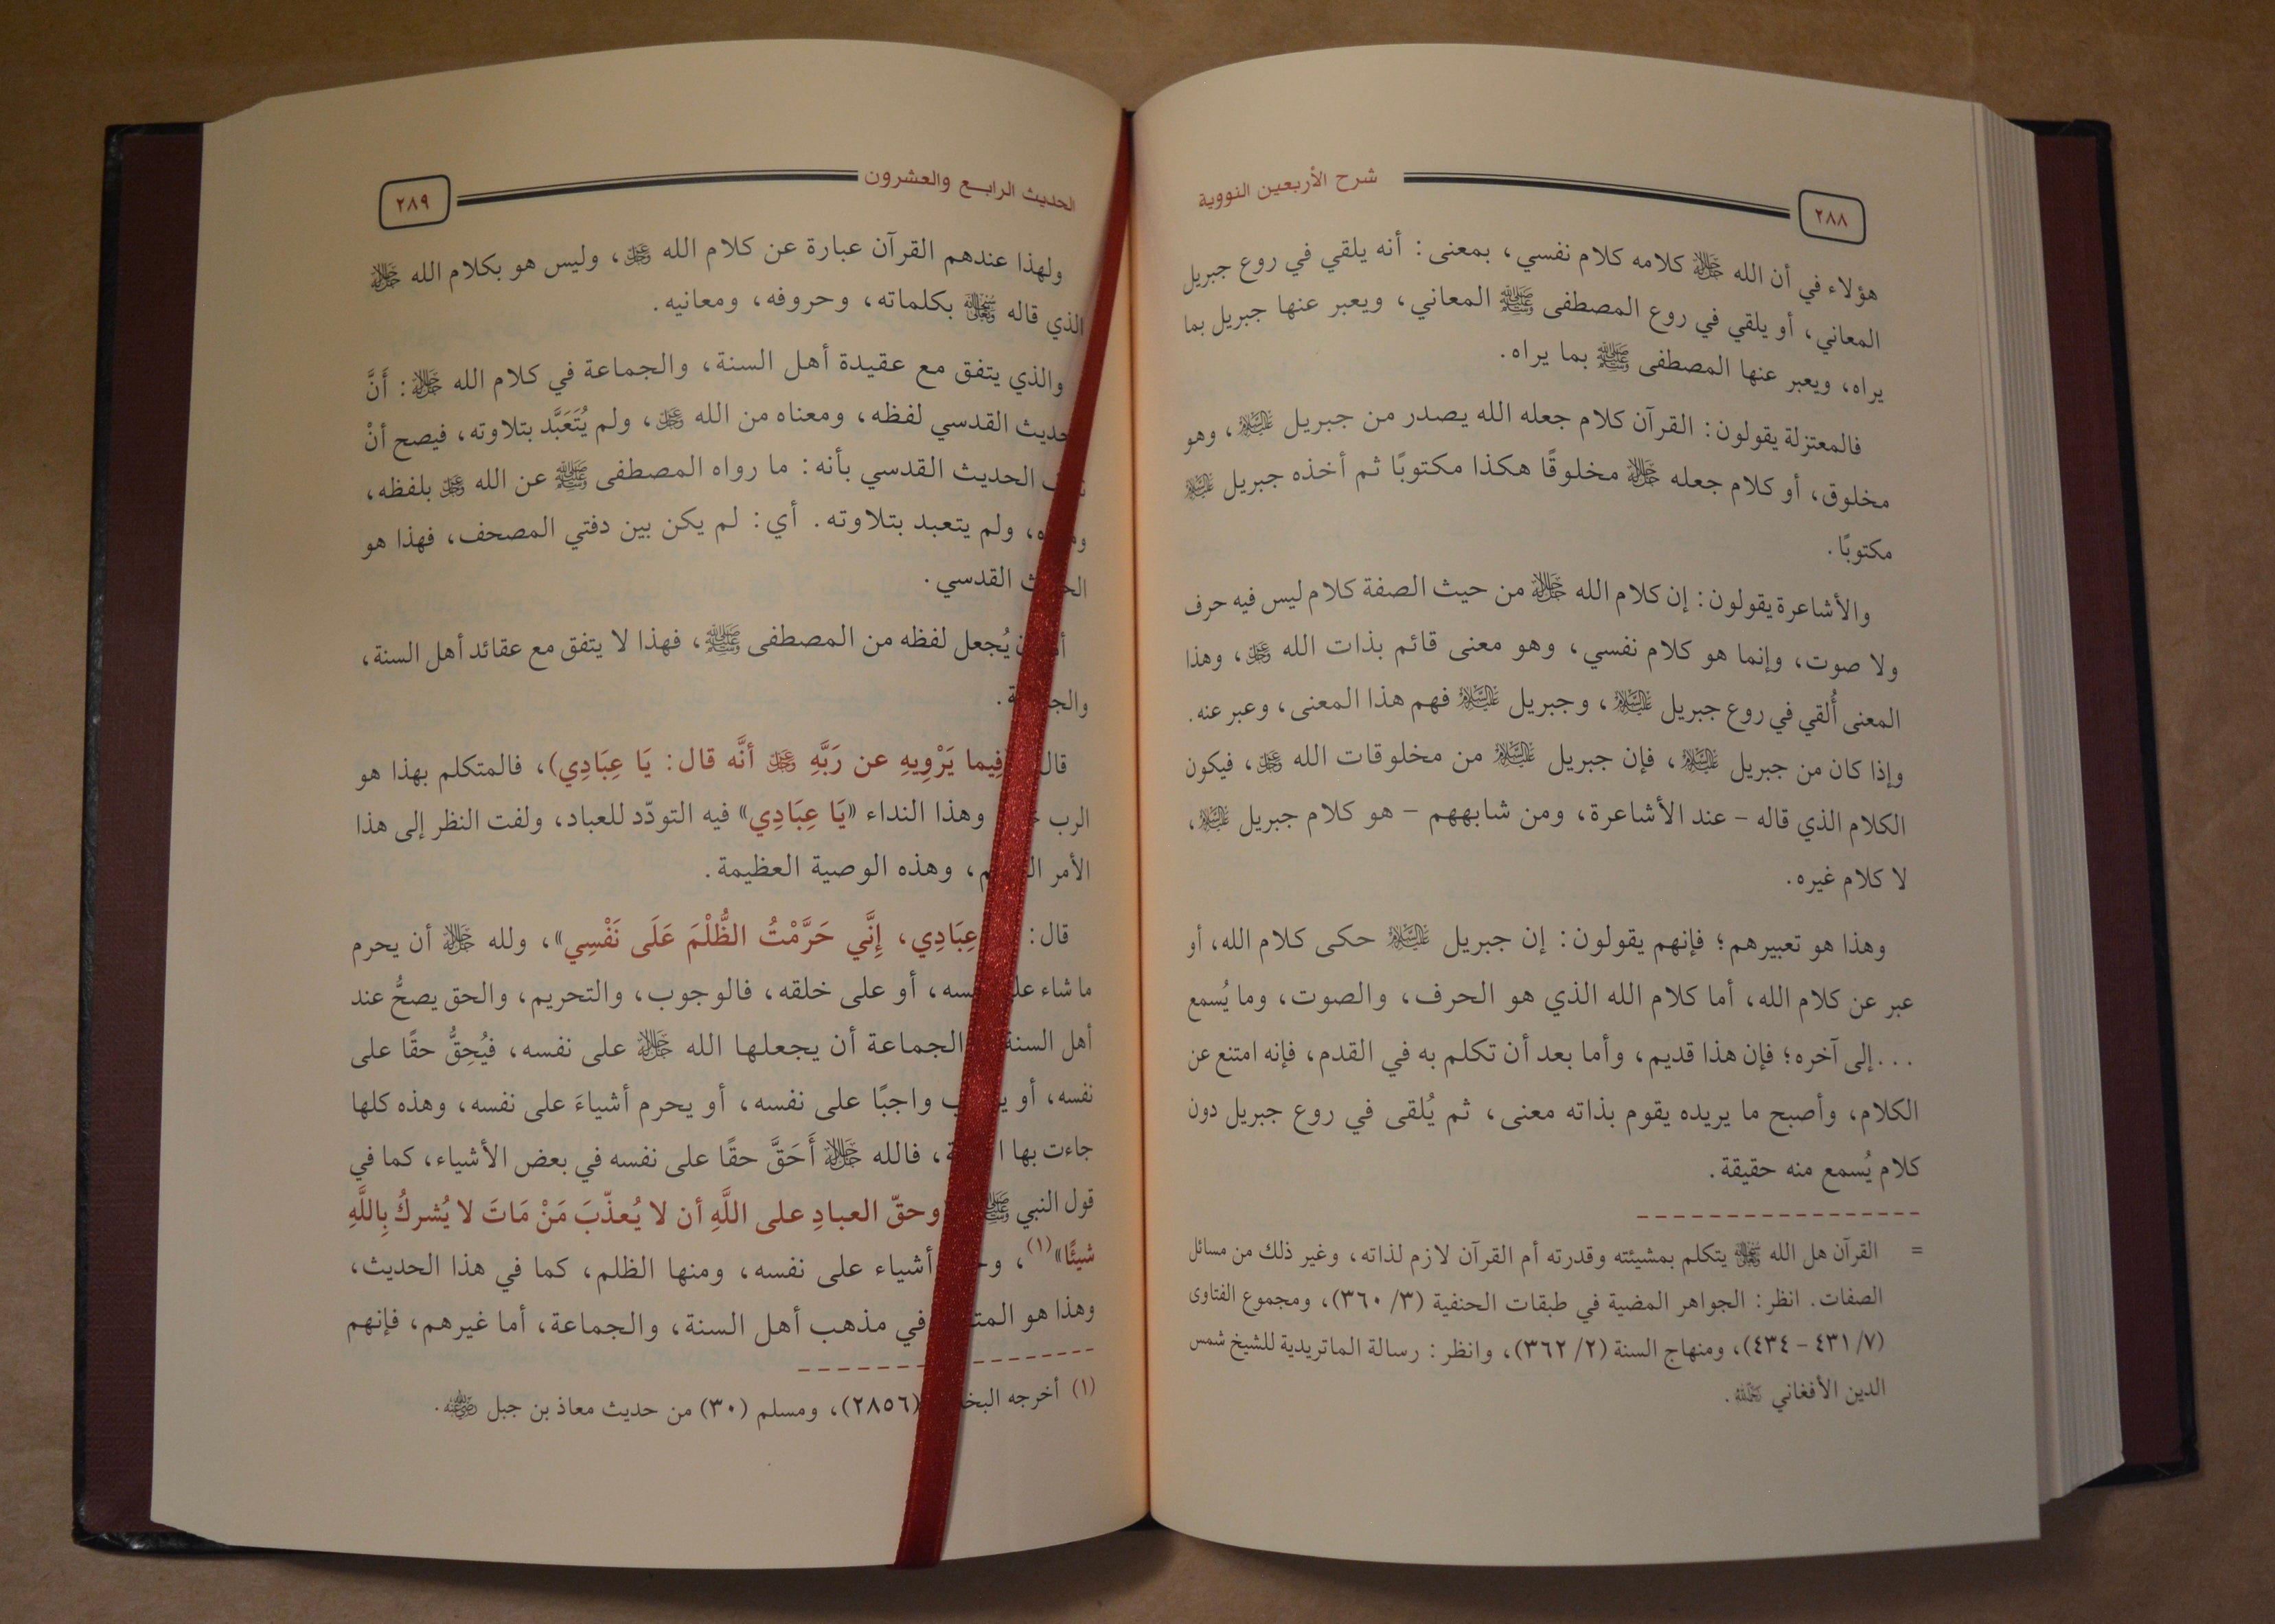 ٢٨٨
شرح الأربعين النووية
هؤلاء في أن الله ﷻ كلامه كلام نفسي، بمعنى: أنه يلقي في روع جبريل
المعاني، أو يلقي في روع المصطفى ﷺ المعاني، ويعبر عنها جبريل بما
يراه، ويعبر عنها المصطفى ﷺ بما يراه.
فالمعتزلة يقولون: القرآن كلام جعله الله يصدر من جبريل عليه السلام، وهو
مخلوق، أو كلام جعله ﷻ مخلوقًا هكذا مكتوبًا ثم أخذه جبريل عليه السلام
مكتوبًا.
والأشاعرة يقولون: إن كلام الله ﷻ من حيث الصفة كلام ليس فيه حرف
ولا صوت، وإنما هو كلام نفسي، وهو معنى قائم بذات الله عز وجل، وهذا
المعنى أُلقي في روع جبريل عليه السلام، وجبريل عليه السلام فهم هذا المعنى، وعبر عنه.
وإذا كان من جبريل عليه السلام، فإن جبريل عليه السلام من مخلوقات الله عز وجل، فيكون
الكلام الذي قاله - عند الأشاعرة، ومن شابههم - هو كلام جبريل عليه السلام،
لا كلام غيره.
وهذا هو تعبيرهم؛ فإنهم يقولون: إن جبريل عليه السلام حكى كلام الله، أو
عبر عن كلام الله، أما كلام الله الذي هو الحرف، والصوت، وما يُسمع
...إلى آخره؛ فإن هذا قديم، وأما بعد أن تكلم به في القدم، فإنه امتنع عن
الكلام، وأصبح ما يريده يقوم بذاته معنى، ثم يُلقى في روع جبريل دون
كلام يُسمع منه حقيقة.
= القرآن هل الله سبحانه وتعالى يتكلم بمشيئته وقدرته أم القرآن لازم لذاته، وغير ذلك من مسائل
الصفات. انظر: الجواهر المضية في طبقات الحنفية (٣/ ٣٦٠)، ومجموع الفتاوى
(٧/ ٤٣١ - ٤٣٤)، ومنهاج السنة (٢/ ٣٦٢)، وانظر: رسالة الماتريدية للشيخ شمس
الدين الأفغاني رحمه الله.
الحديث الرابع والعشرون
٢٨٩
ولهذا عندهم القرآن عبارة عن كلام الله عز وجل، وليس هو بكلام الله ﷻ
الذي قاله سبحانه وتعالى بكلماته، وحروفه، ومعانيه.
والذي يتفق مع عقيدة أهل السنة، والجماعة في كلام الله ﷻ: أَنَّ
حديث القدسي لفظه، ومعناه من الله عز وجل، ولم يُتَعَبَّد بتلاوته، فيصح أنْ
الحديث القدسي بأنه: ما رواه المصطفى ﷺ عن الله عز وجل بلفظه،
، ولم يتعبد بتلاوته. أي: لم يكن بين دفتي المصحف، فهذا هو
القدسي.
يُجعل لفظه من المصطفى ﷺ، فهذا لا يتفق مع عقائد أهل السنة،
قال فِيما يَرْوِيهِ عن رَبَّهِ عز وجل أنَّه قال: يَا عِبَادِي)، فالمتكلم بهذا هو
الرب وهذا النداء «يَا عِبَادِي» فيه التودّد للعباد، ولفت النظر إلى هذا
الأمر ، وهذه الوصية العظيمة.
قال: عِبَادِي، إِنَّي حَرَّمْتُ الظُّلْمَ عَلَى نَفْسِي»، ولله ﷻ أن يحرم
ما شاء أو على خلقه، فالوجوب، والتحريم، والحق يصحُّ عند
أهل السنة الجماعة أن يجعلها الله ﷻ على نفسه، فيُحِقُّ حقًا على
نفسه، أو واجبًا على نفسه، أو يحرم أشياءَ على نفسه، وهذه كلها
جاءت بها ، فالله ﷻ أَحَقَّ حقًا على نفسه في بعض الأشياء، كما في
قول النبي ﷺ وحقّ العبادِ على اللَّهِ أن لا يُعذّبَ مَنْ مَاتَ لا يُشركُ بِاللَّهِ
شيئًا»(١)، أشياء على نفسه، ومنها الظلم، كما في هذا الحديث،
وهذا هو في مذهب أهل السنة، والجماعة، أما غيرهم، فإنهم
(١) أخرجه (٢٨٥٦)، ومسلم (٣٠) من حديث معاذ بن جبل رضي الله عنه.